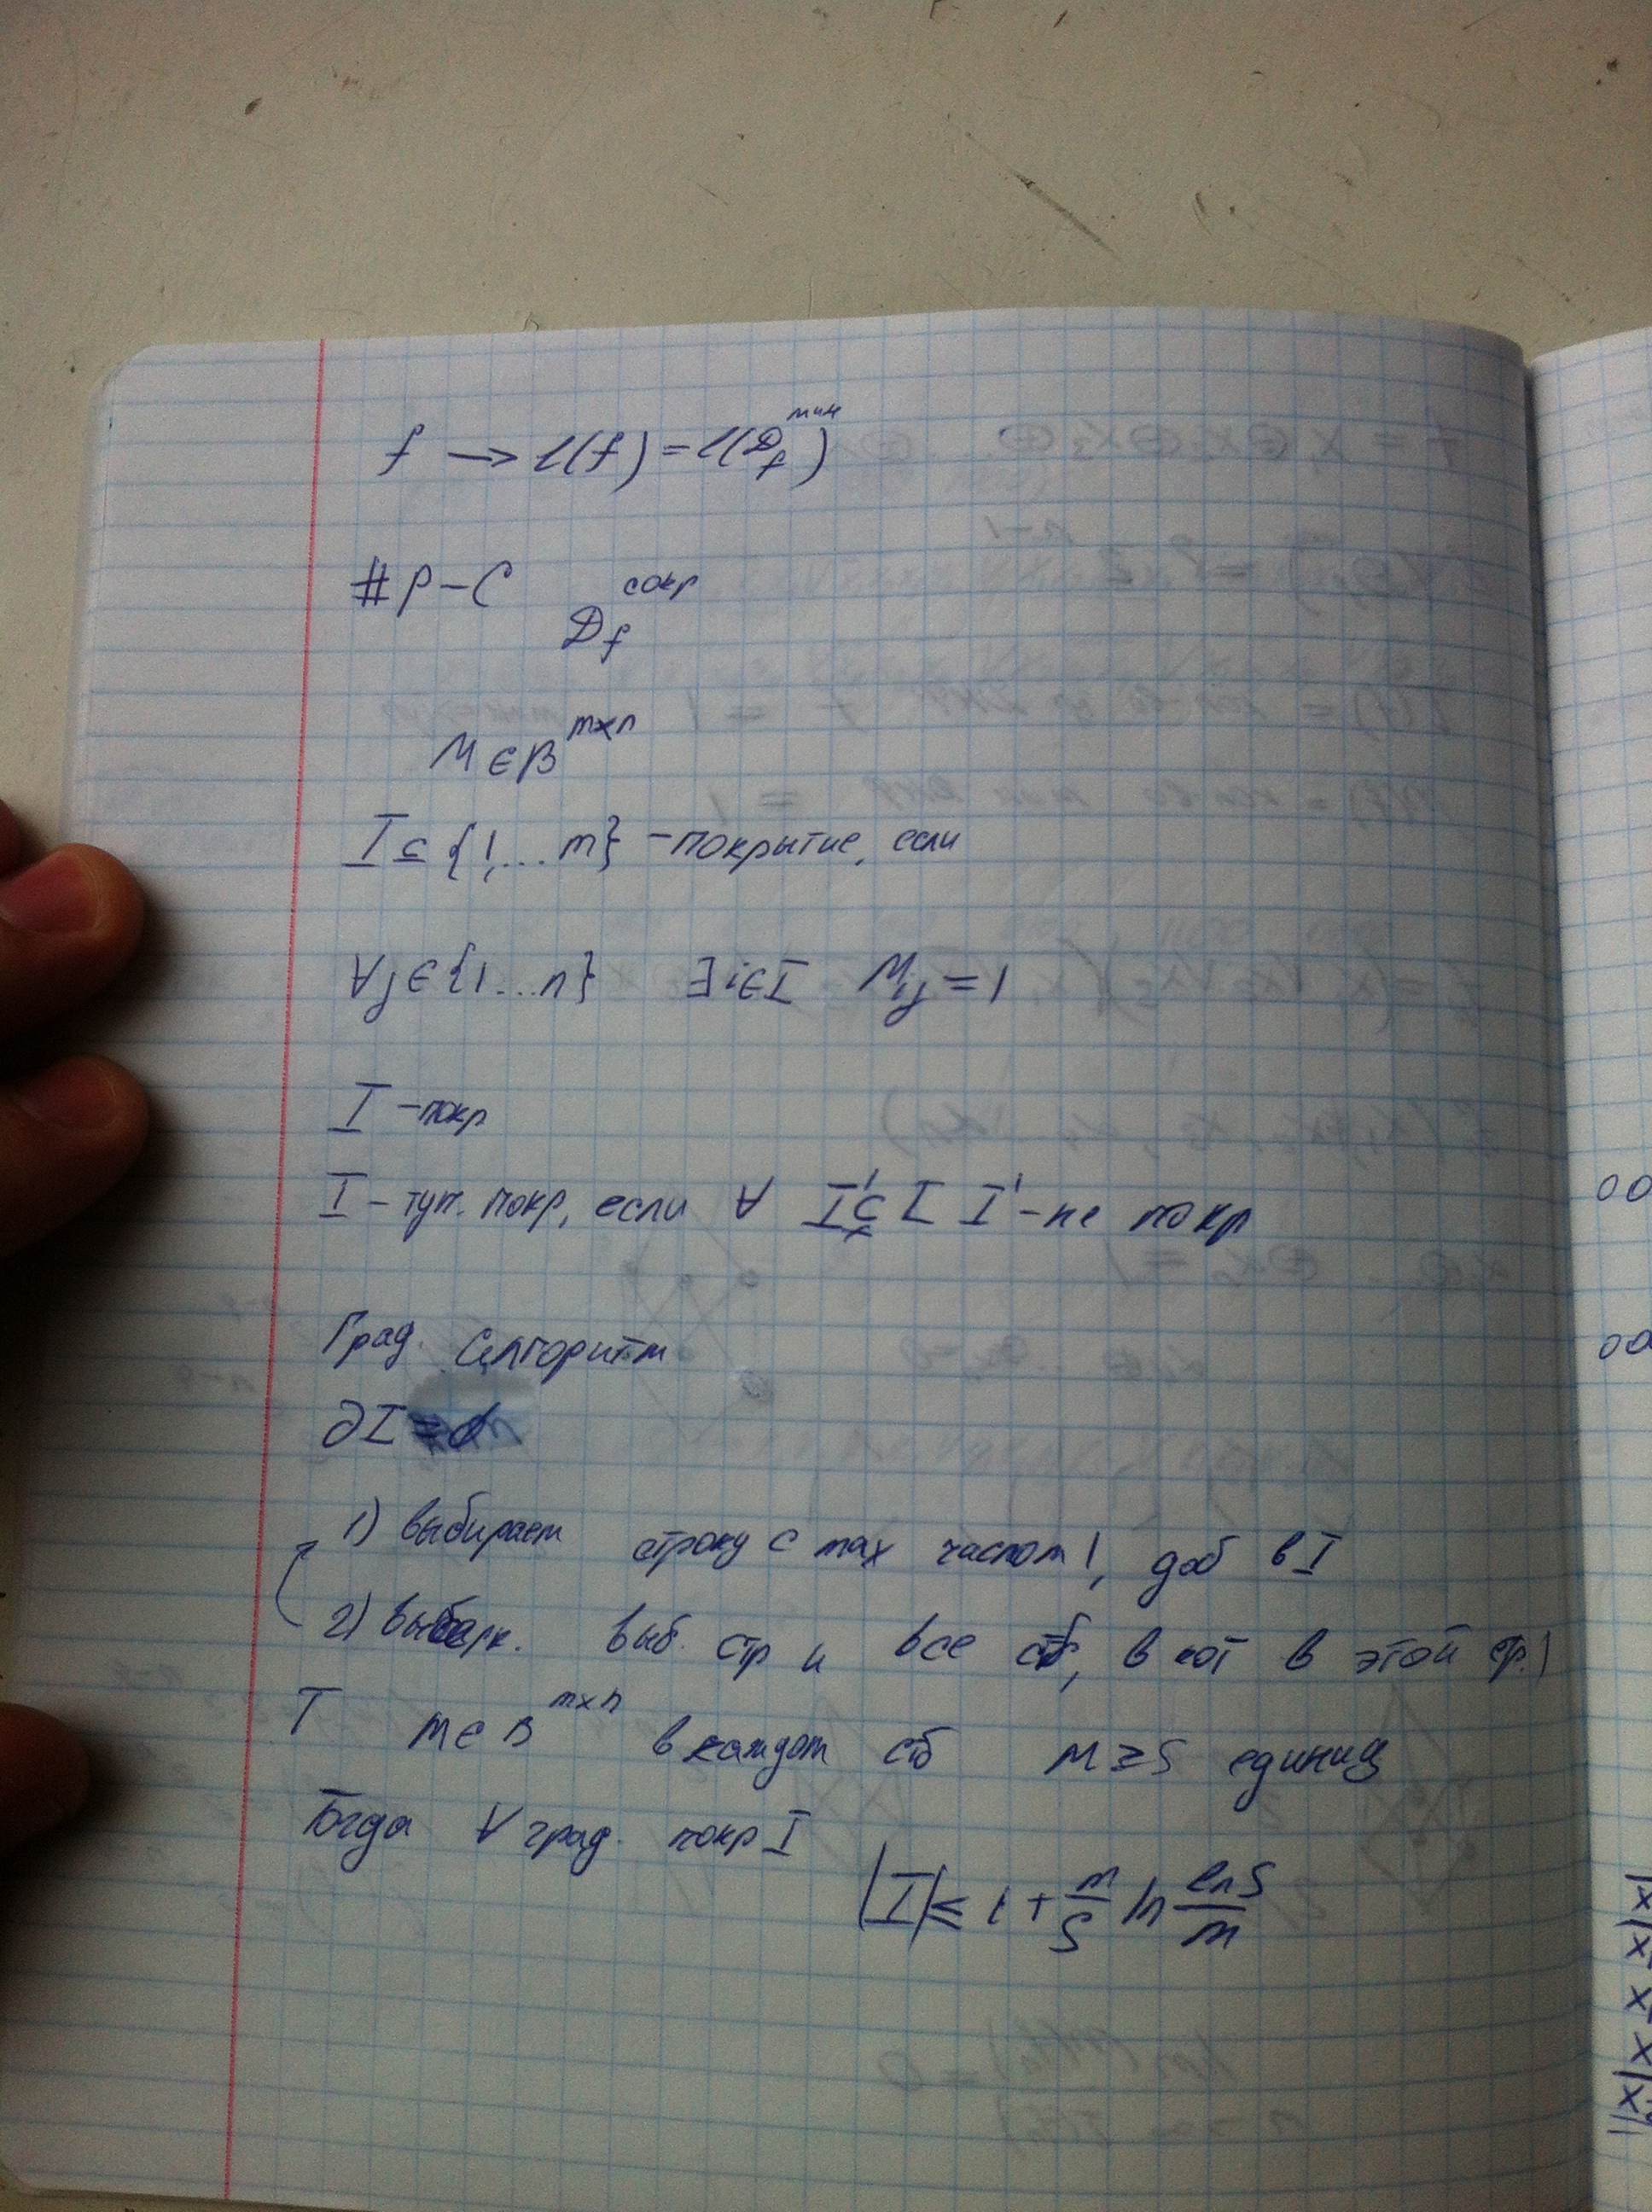 f → l(f) = l(D_f^мин)
#P-C D_f^сокр
M ∈ B^{m×n}
I ⊆ {1,...m} - покрытие, если
∀j ∈ {1...n} ∃i∈I M_ij = 1
I - покр
I - туп. покр, если ∀ I' ⊊ I I' - не покр
Град. алгоритм
I = ∅
1) выбираем строку с max числом 1, доб в I
2) вычерк. выб. стр и все стб, в кот в этой стр. 1
T M ∈ B^{m×n} в каждом стб M ≥ S единиц
Тогда ∀ град. покр I
|I| ≤ 1 + m/S ln enS/m